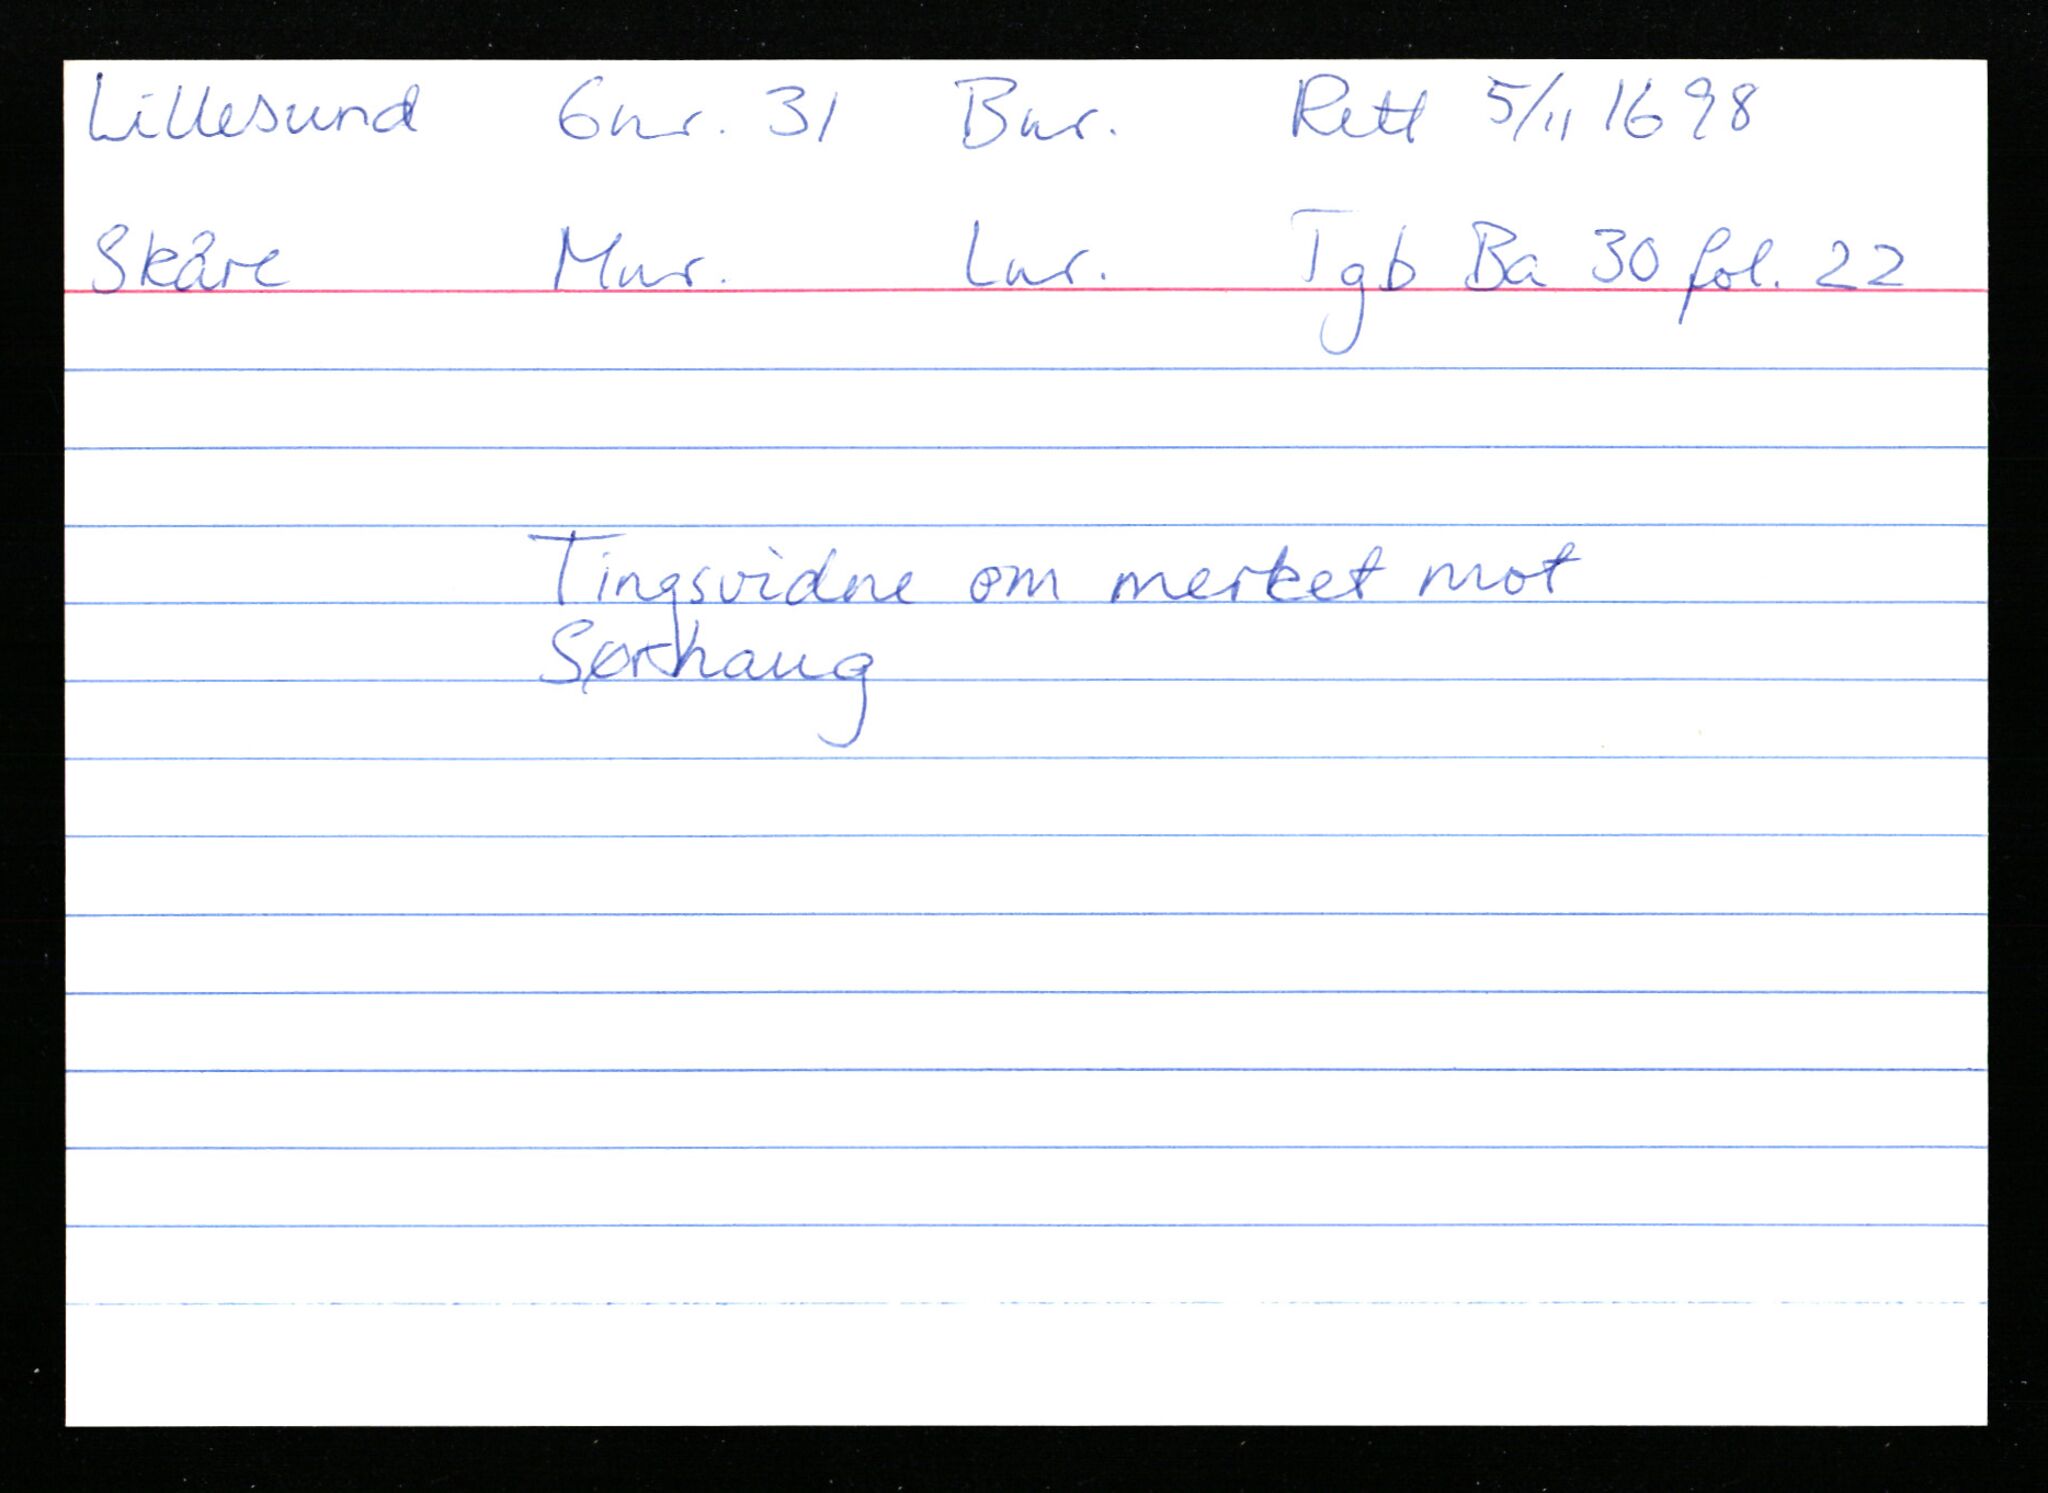 Lillesund Gnr. 31 Bnr. Rett 5/11 1698
Skåre Mnr. Lnr. Tgb Ba 30 fol. 22
Tingsvidne om merket mot
Sørhaug